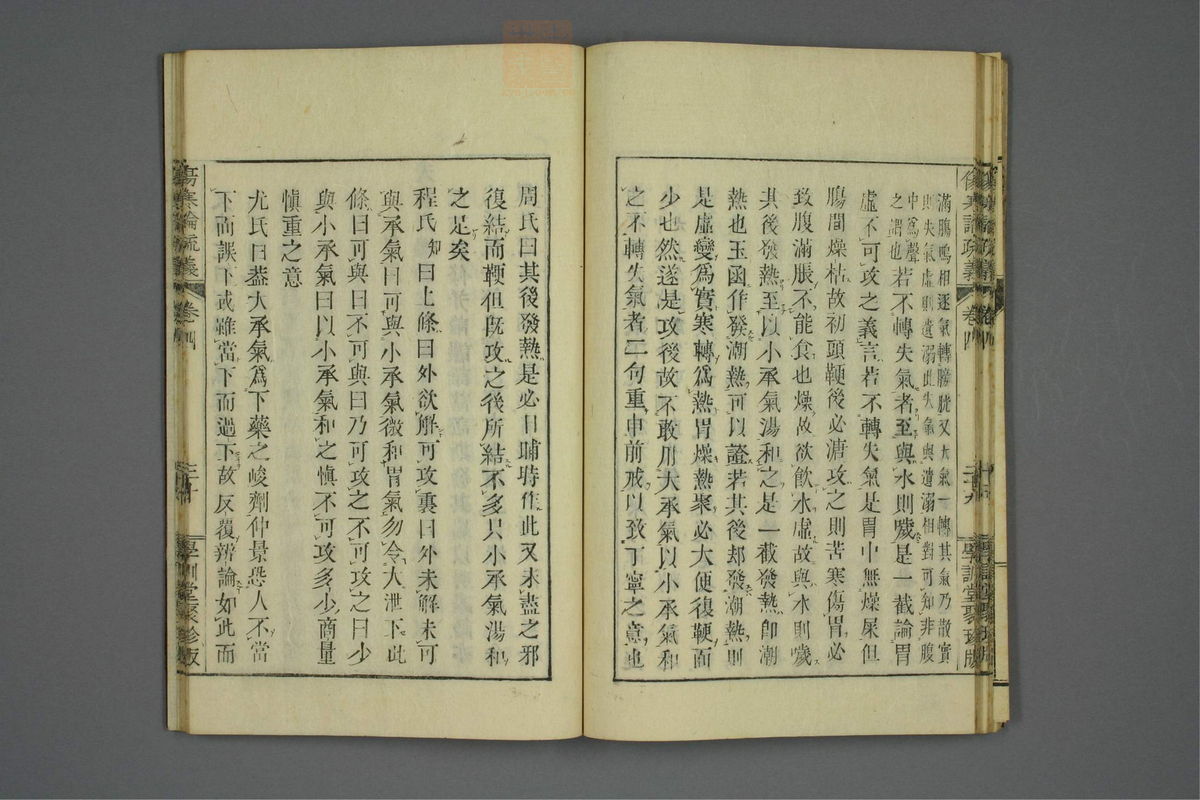 滿腸鳴相逐氣轉膀胱又大氣一轉其氣乃散實
則失氣虛則遺溺此失氣與遺溺相對可知非腹
中爲聲
之謂也若不轉失氣者至與水則噦是一截論胃
虛不可攻之義言若不轉失氣是胃中無燥屎但
腸間燥枯故初頭鞕後必溏攻之則苦寒傷胃必
致腹滿脹不能食也燥故欲飲水虛故與水則噦
其後發熱至以小承氣湯和之是一截發熱卽潮
熱也玉函作發潮熱可以證若其後却發潮熱則
是虛變爲實寒轉爲熱胃燥熱聚必大便復鞕而
少也然遂是攻後故不敢用大承氣以小承氣和
之不轉失氣者二句重申前戒以致丁寧之意也
傷寒論疏義
卷四
三十九
學訓堂聚珍版
周氏曰其後發熱是必日晡時作此又未盡之邪
復結而鞕但旣攻之後所結不多只小承氣湯和
之足矣
程氏知曰上條曰外欲解可攻裏曰外未解未可
與承氣曰可與小承氣微和胃氣勿令大泄下此
條曰可與曰不可與曰乃可攻之不可攻之曰少
與小承氣曰以小承氣和之愼不可攻多少商量
愼重之意
尤氏曰葢大承氣爲下藥之峻劑仲景恐人不當
下而誤下或雖當下而過下故反覆辨論如此而
傷寒論疏義
卷四
學訓堂聚珍版